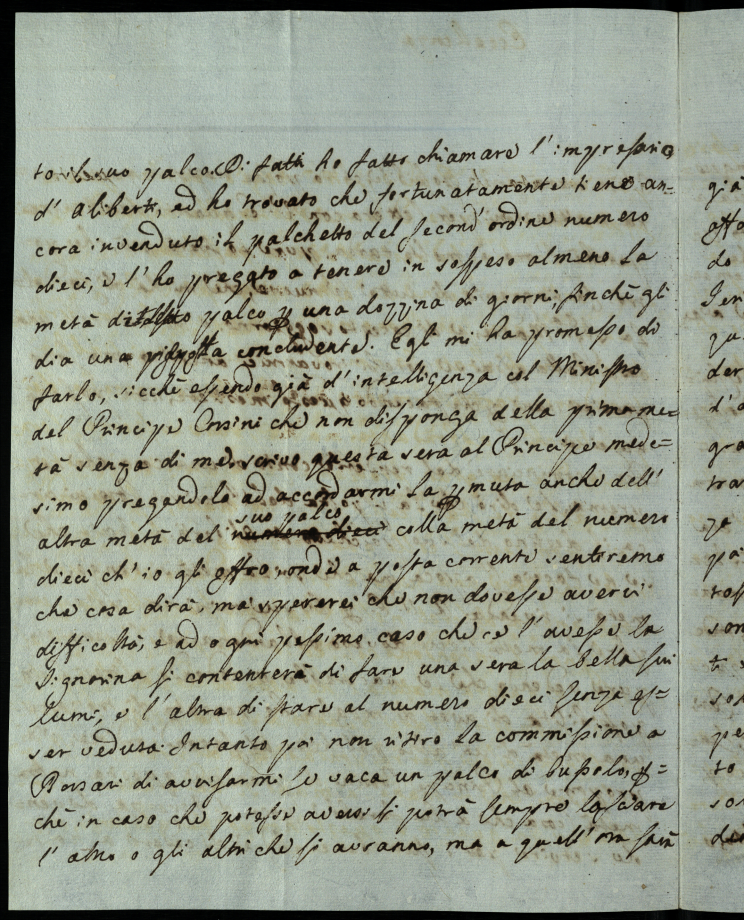 to il suo palco. Di fatti ho fatto chiamare l'impresario
d'Aliberti, ed ho trovato che fortunatamente tiene an=
cora invenduto il palchetto del second'ordine numero
dieci, e l'ho pregato a tenere in sospeso almeno la
metà di palco p una dozzina di giorni, finchè gli
dia una risposta concludente. Egli mi ha promesso di
farlo, sicchè essendo già d'intelligenza col Ministro
del Principe Corsini che non disponga della prima me=
tà senza di me, scrivo questa sera al Principe mede=
simo pregandolo ad accordarmi la pmuta anche dell'
altra metà del suo palco colla metà del numero
dieci ch'io gli offro, onde a posta corrente sentiremo
che cosa dirà, ma spererei che non dovesse avervi
difficoltà, e ad ogni pessimo caso che ce l'avesse la
Signorina si contenterà di fare una sera la bella sui
lumi, e l'altra di stare al numero dieci senza es=
ser veduta. Intanto poi non ritiro la commissione a
di avvisarmi se vaca un palco di bussolo, p=
chè in caso che potesse aversi si potrà sempre lasciare
l'altro o gli altri che si avranno, ma a quell'ora sarà
già
do
der
d'a
gra
tras
pa
son
so
pe
to